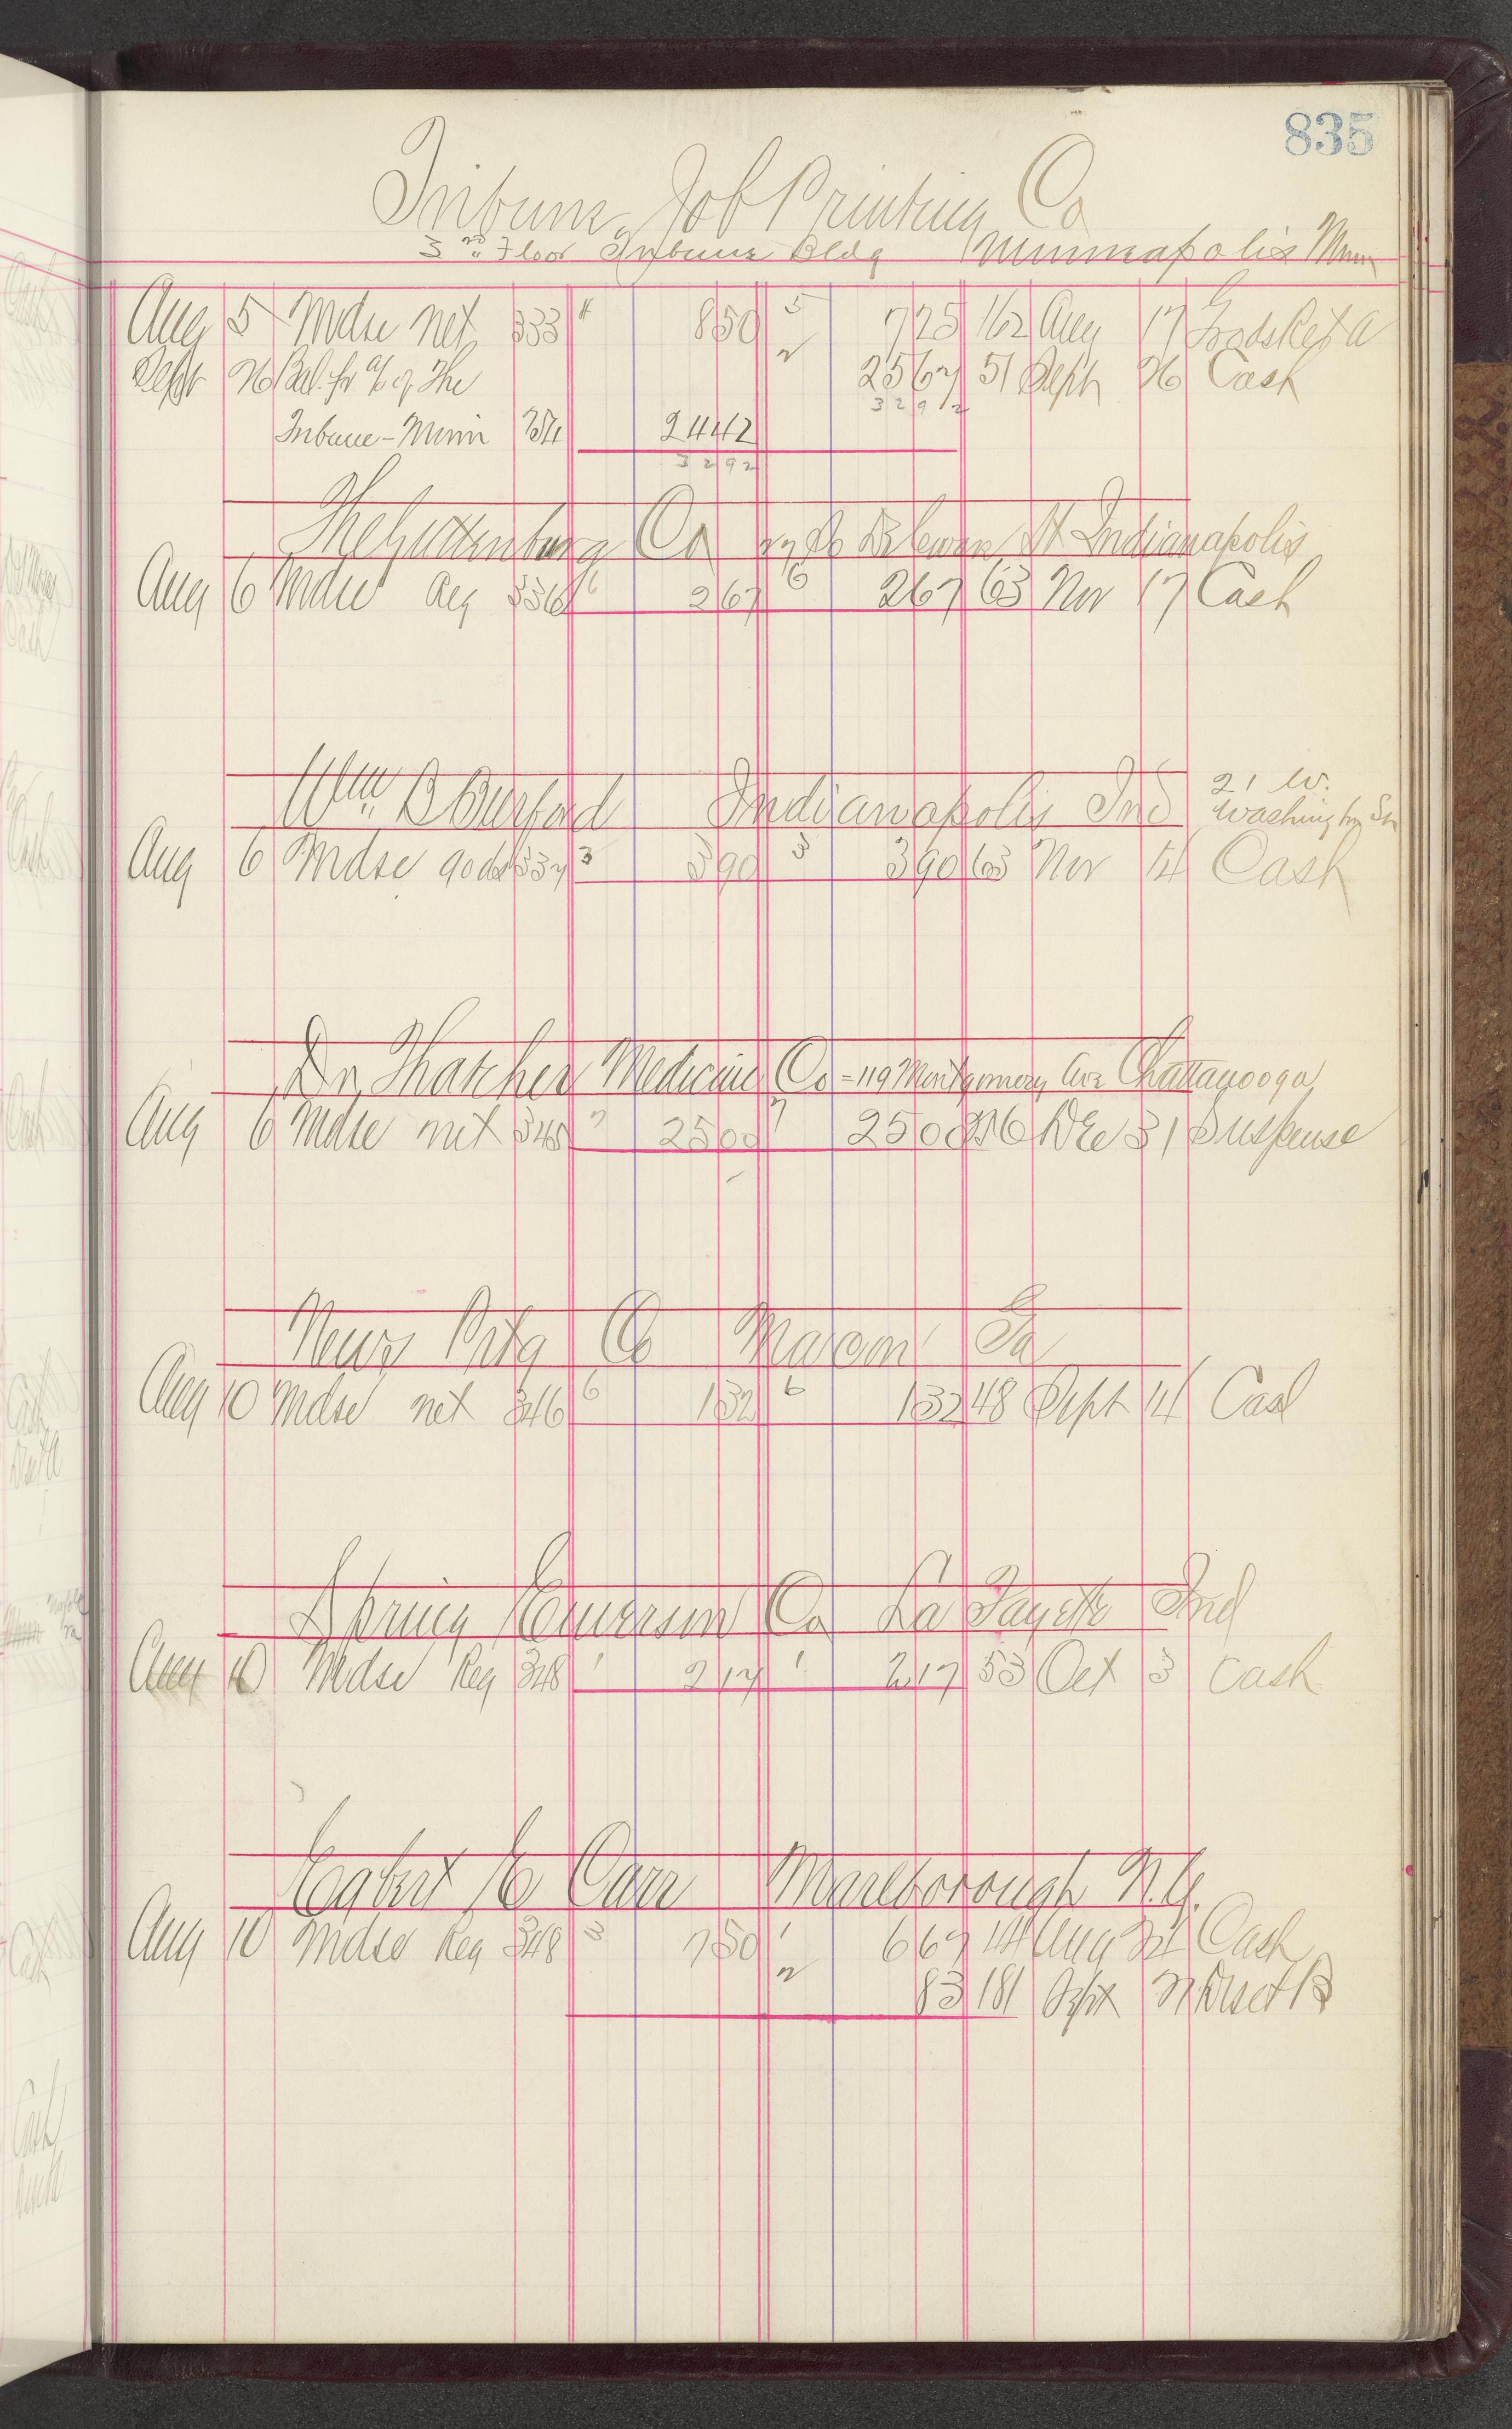 835
Tribune Job Printing Co
3rd Floor Tribune Bldg Minneapolis Minn
Aug 5 Mdse net 333 4 850 5 725 162 Aug 17 Gods Ret A
Sept 26 Bal. fr a/c of The 2 2567 51 Sept 26 Cash
3292
Tribune - Minn 754 2442
3292
The Guttenburg Co 27 So Delewan St Indianapolis
Aug 6 Mdse Reg 336 6 267 6 267 63 Nov 17 Cash
Wm B Burford Indianapolis Ind 21 W. Washington St
Aug 6 Mdse 90 ds 337 3 390 3 390 63 Nov 14 Cash
Dr Thatcher Medicine Co = 119 Montgomery Ave Chattanooga
Aug 6 Mdse net 345 7 2500 7 2500 Dec 31 Suspense
News Prtg Co Macon Ga
Aug 10 Mdse net 346 6 132 6 132 48 Sept 14 Cash
Spring Emerson Co La Fayette Ind
Aug 10 Mdse Reg 348 1 217 1 217 53 Oct 3 Cash
Egbert E Carr Marlborough N.Y.
Aug 10 Mdse Reg 348 3 750 1 667 Aug Cash
2 83 181 Sept 27 Disct B